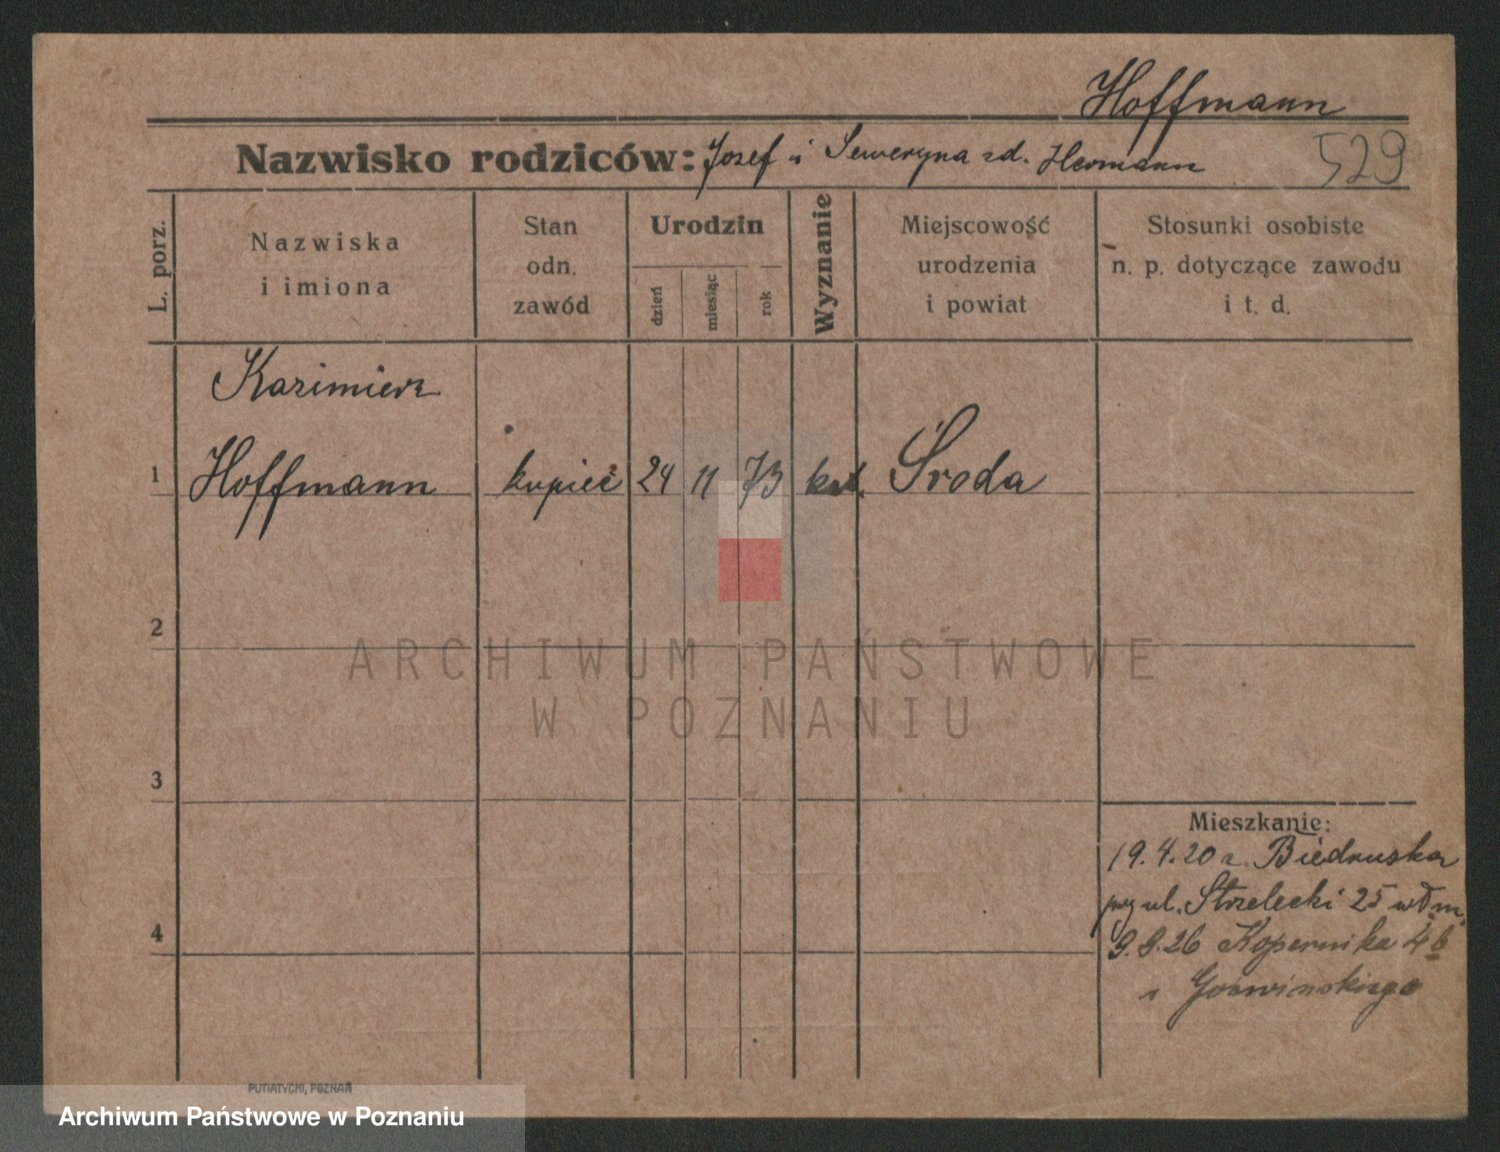 Hoffmann
Nazwisko rodziców: Josef i Seweryna zd. Hermann
529
L. porz.
Nazwiska
i imiona
Stan
odn.
zawód
Urodzin
dzień
miesiąc
rok
Wyznanie
Miejscowość
urodzenia
i powiat
Stosunki osobiste
n. p. dotyczące zawodu
i t. d.
Kazimierz
1 Hoffmann kupiec 24 11 73 kat. Środa
2
ARCHIWUM PAŃSTWOWE
W POZNANIU
3
Mieszkanie:
19.4.20 z Biedruska
ul. Strzelecki 25
4
9.9.26 Kopernika 4
PUTIATYCKI, POZNAŃ
Archiwum Państwowe w Poznaniu